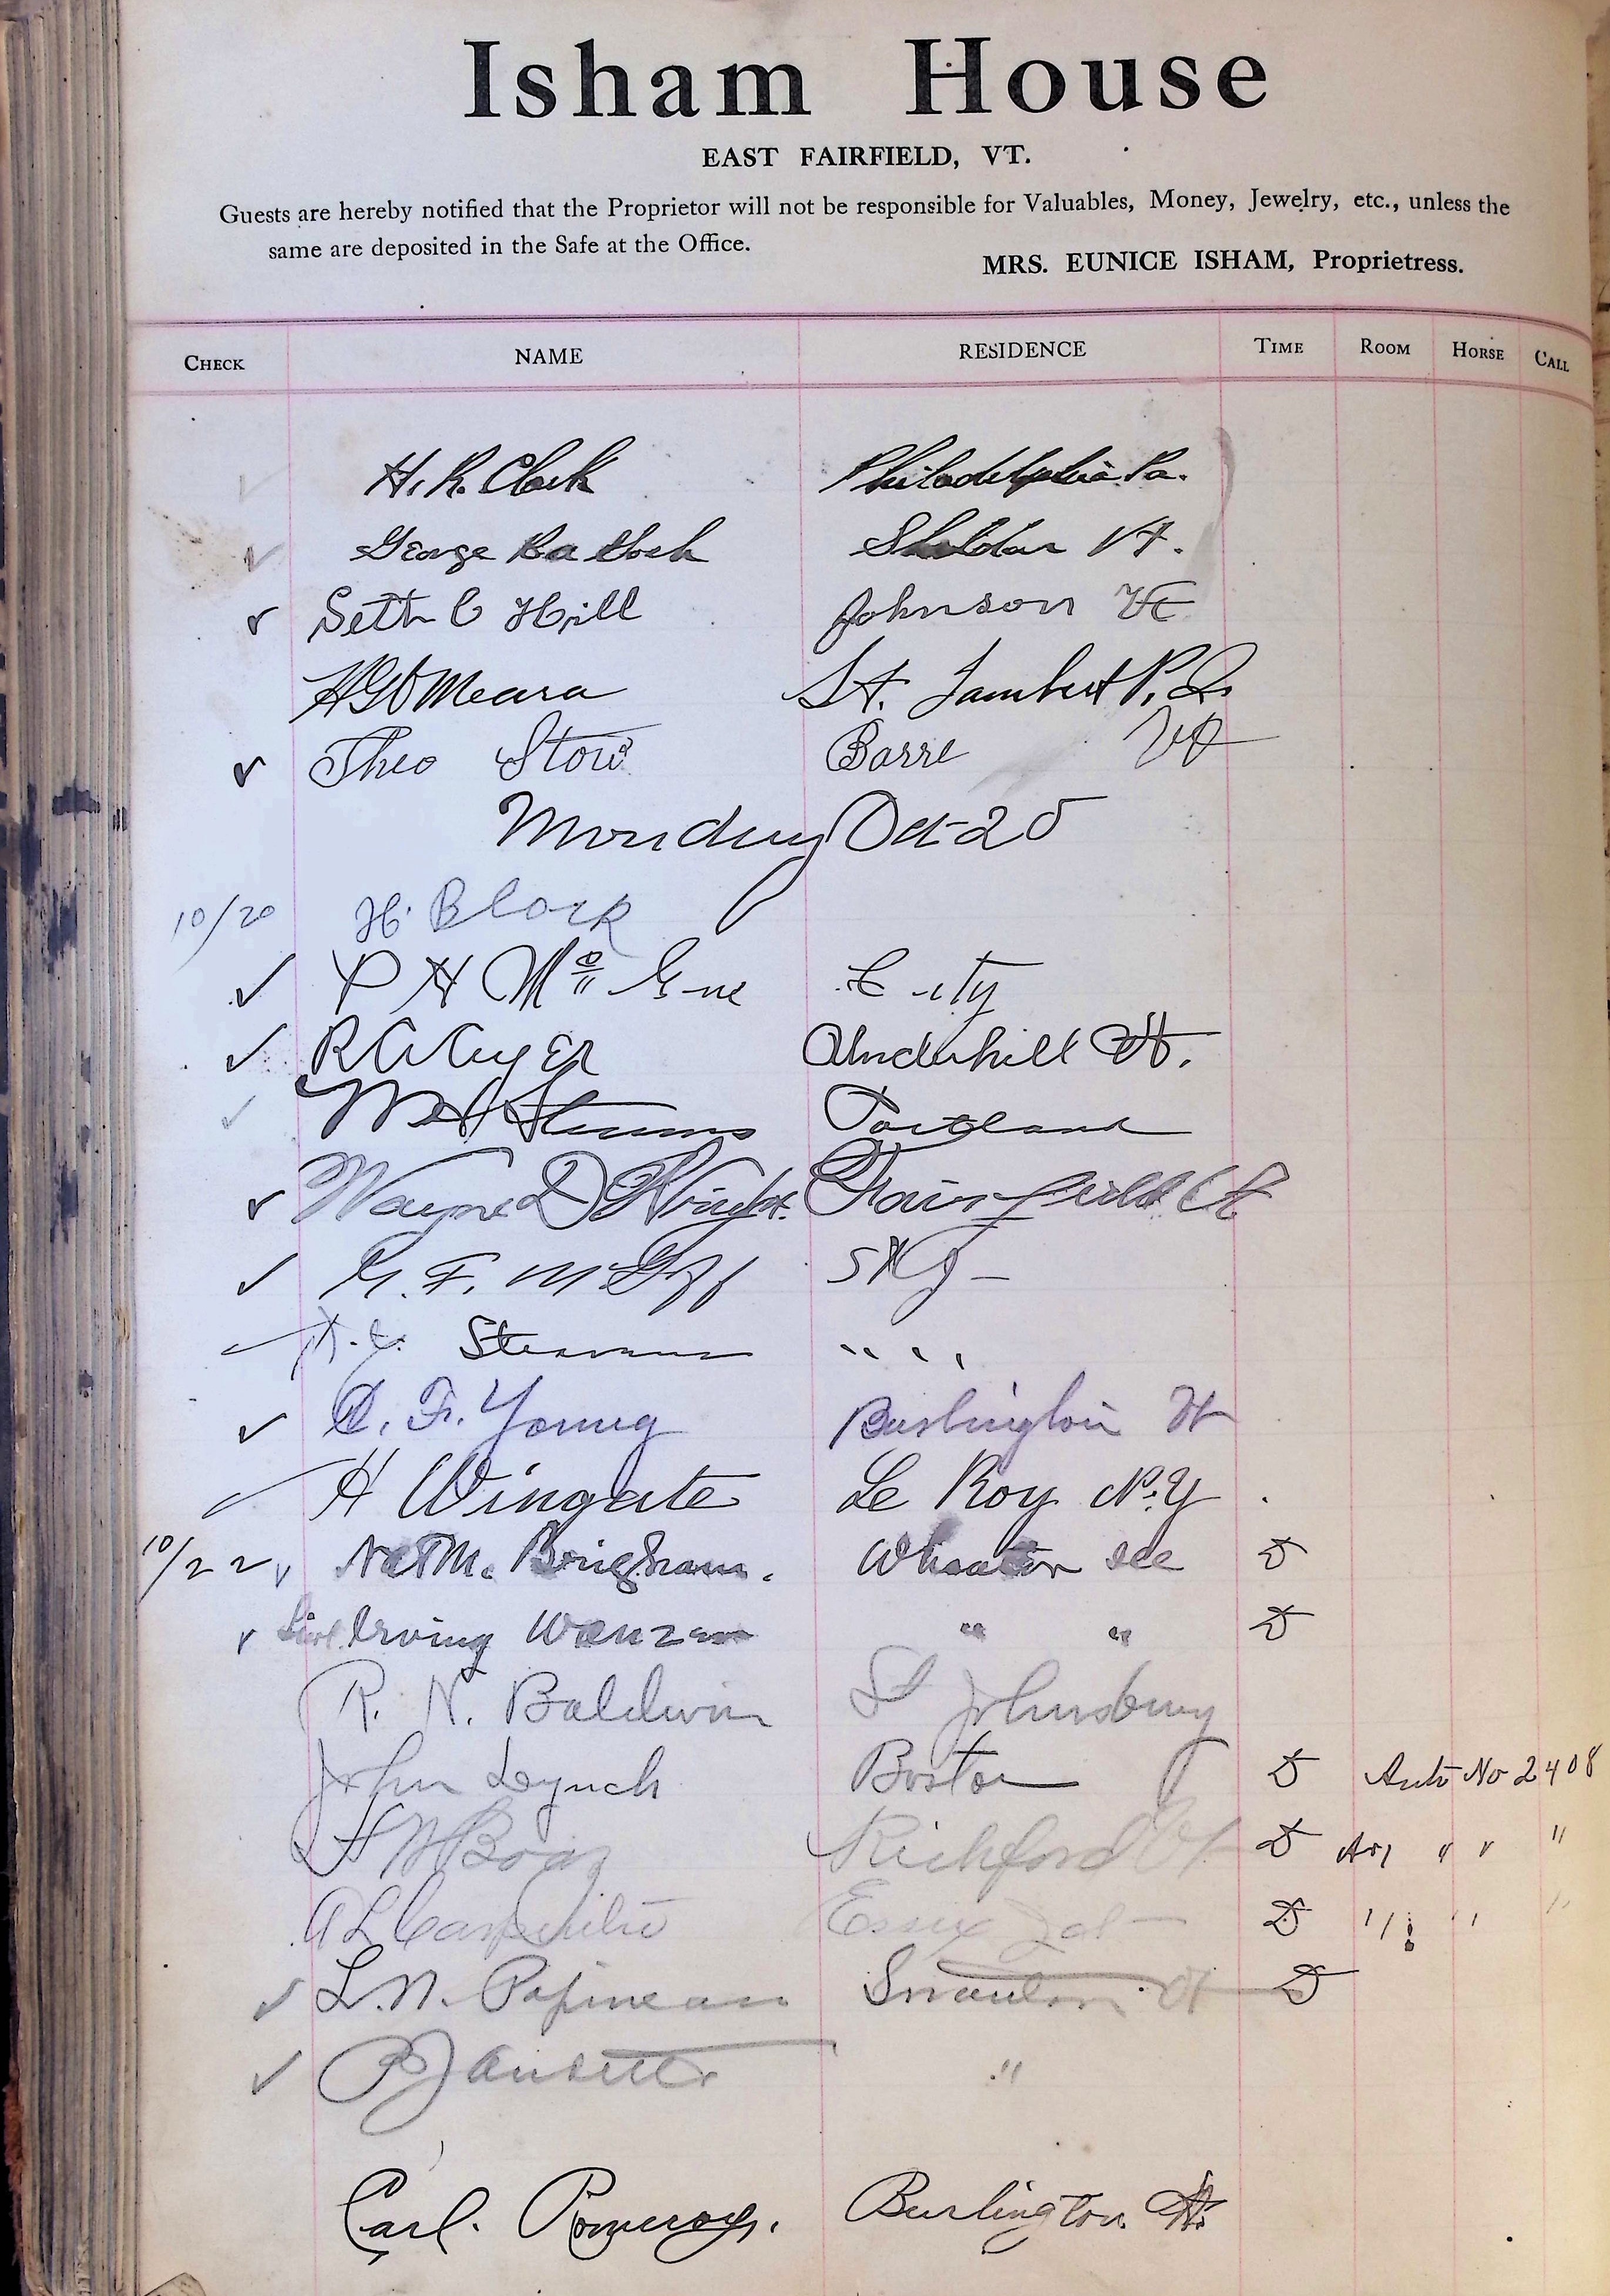 Isham House
EAST FAIRFIELD, VT.
Guests are hereby notified that the Proprietor will not be responsible for Valuables, Money, Jewelry, etc., unless the
same are deposited in the Safe at the Office.
MRS. EUNICE ISHAM, Proprietress.
CHECK NAME RESIDENCE TIME ROOM HORSE CALL
H. R. Clark Philadelphia Pa.
George Sheldon Vt.
Seth C Hill Johnson Vt
HGO'Meara St. Lambert P.Q.
Theo Stow Barre Vt
Monday Oct 20
10/20 H. Block
P H City
R A Ayer Underhill Vt.
Portland
Wayne D Wright. Fairfield Vt
G. F.
Stearns " "
C. F. Young Burlington Vt
H Wingate Le Roy N.Y
10/22 Nat M. Brigham. Wheaton Ill D
Irving Wanzer " " D
R. N. Baldwin St Johnsbury
John Lynch Boston D Auto No 2408
Richford Vt D " " "
A L Carpenter Essex Jct D " " "
L. N. Papineau Swanton Vt D
"
Carl. Pomeroy. Burlington. Vt.